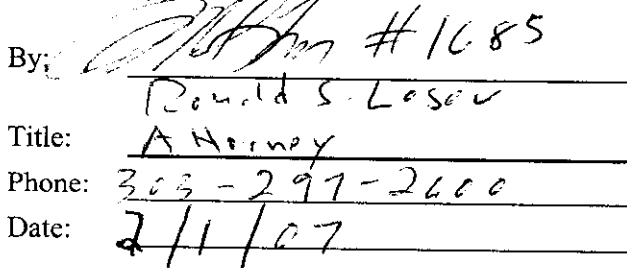 By: #1685
Ronald S. Loser
Title: Attorney
Phone: 303-297-2600
Date: 2/1/07